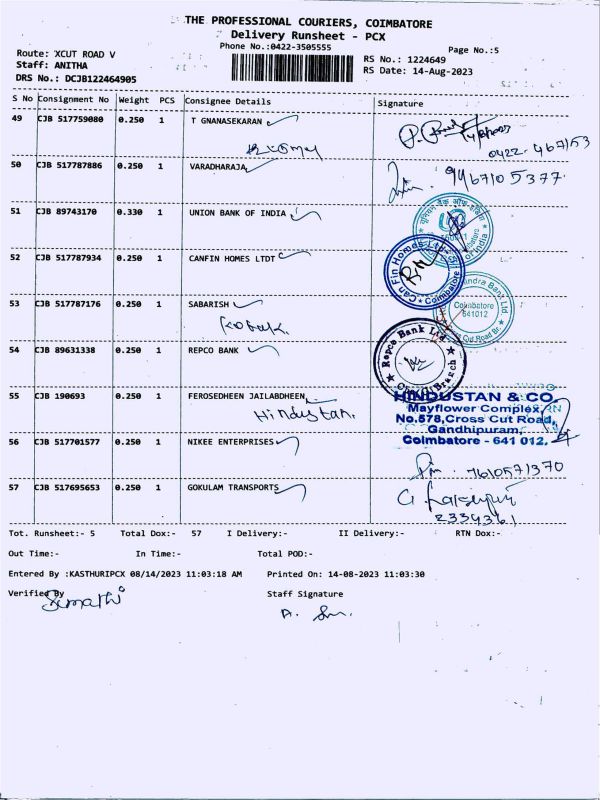 THE PROFESSIONAL COURIERS, COIMBATORE
Delivery Runsheet - PCX
Phone No.:0422-3505555
Page No.:5
Route: XCUT ROAD V
Staff: ANITHA
DRS No.: DCJB122464905
RS No.: 1224649
RS Date: 14-Aug-2023
S No Consignment No Weight PCS Consignee Details Signature
49 CJB 517759080 0.250 1 T GNANASEKARAN
0422. 467153
50 CJB 517787886 0.250 1 VARADHARAJA
9467105377
51 CJB 89743170 0.330 1 UNION BANK OF INDIA
52 CJB 517787934 0.250 1 CANFIN HOMES LTDT
Can Fin Homes Ltd. Coimbatore
53 CJB 517787176 0.250 1 SABARISH
Coimbatore
641012
54 CJB 89631338 0.250 1 REPCO BANK
Repco Bank Ltd
Branch
55 CJB 190693 0.250 1 FEROSEDHEEN JAILABDHEEN
Hindustan.
HINDUSTAN & CO.
Mayflower Complex,
No.578,Cross Cut Road,
Gandhipuram,
Coimbatore - 641 012.
56 CJB 517701577 0.250 1 NIKEE ENTERPRISES
7610571370
57 CJB 517695653 0.250 1 GOKULAM TRANSPORTS
2334361
Tot. Runsheet:- 5 Total Dox:- 57 I Delivery:- II Delivery:- RTN Dox:-
Out Time:- In Time:- Total POD:-
Entered By :KASTHURIPCX 08/14/2023 11:03:18 AM Printed On: 14-08-2023 11:03:30
Verified By Staff Signature